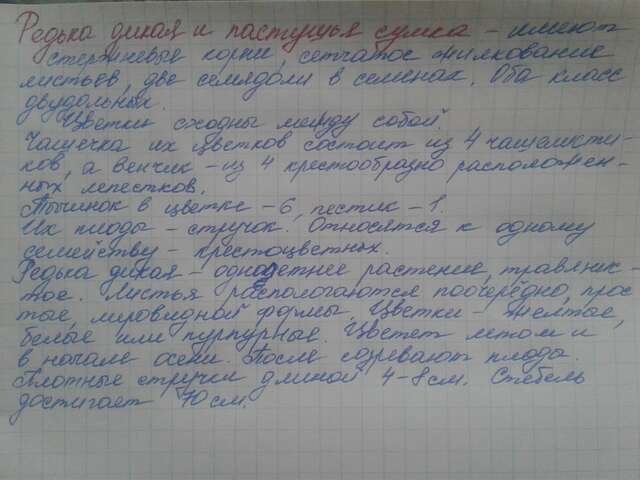 Редька дикая и пастушья сумка - имеют
стержневые корни, сетчатое жилкование
листьев, две семядоли в семенах. Оба класс
двудольных.
Цветки сходны между собой.
Чашечка их цветков состоит из 4 чашелисти-
ков, а венчик - из 4 крестообразно расположен-
ных лепестков.
Тычинок в цветке - 6, пестик - 1.
Их плоды - стручок. Относятся к одному
семейству - крестоцветных.
Редька дикая - однолетнее растение, травянис-
тое. Листья распологаются поочерёдно, прос-
тые, лировидной формы. Цветки - желтые,
белые или пурпурные. Цветет летом и,
в начале осени. После созревают плода.
Плотные стручки длиной 4-8 см. Стебель
достигает 70 см.